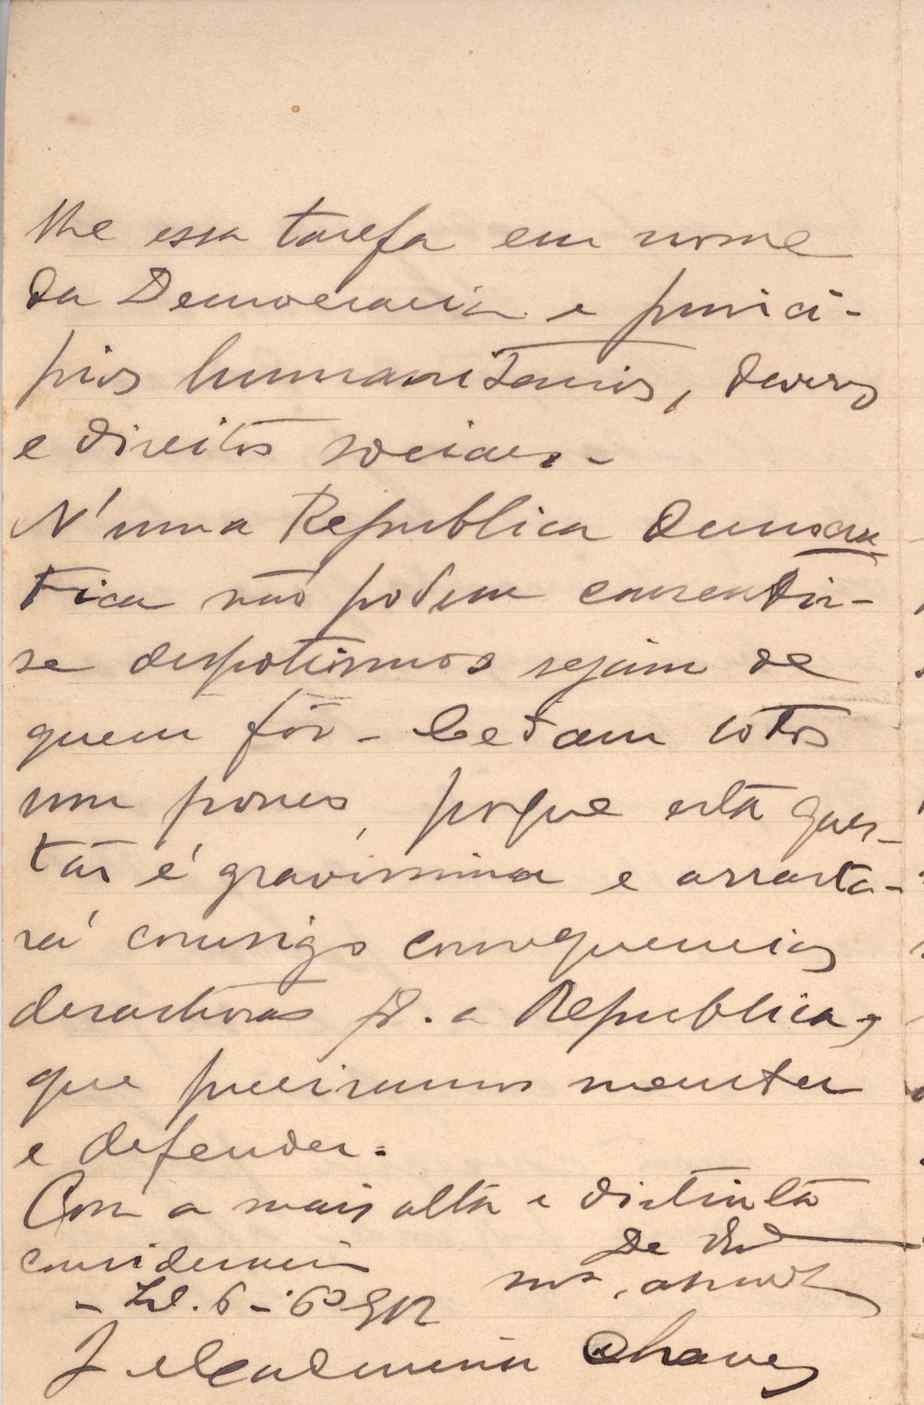 lhe essa tarefa em nome
da Democracia e princi-
pios humanitarios, deveres
e direitos sociaes. -
N'uma Republica Democra
tica não podem consentir-
se despotismos sejam de
quem fôr - Cedam todos
um pouco, porque esta ques-
tão é gravissima e arrasta-
rá comsigo consequencias
desastrosas p. a Republica,
que precisamos manter
e defender.
Com a mais alta e distinta
consideração De
- 6 - 6º 912
J Chaves